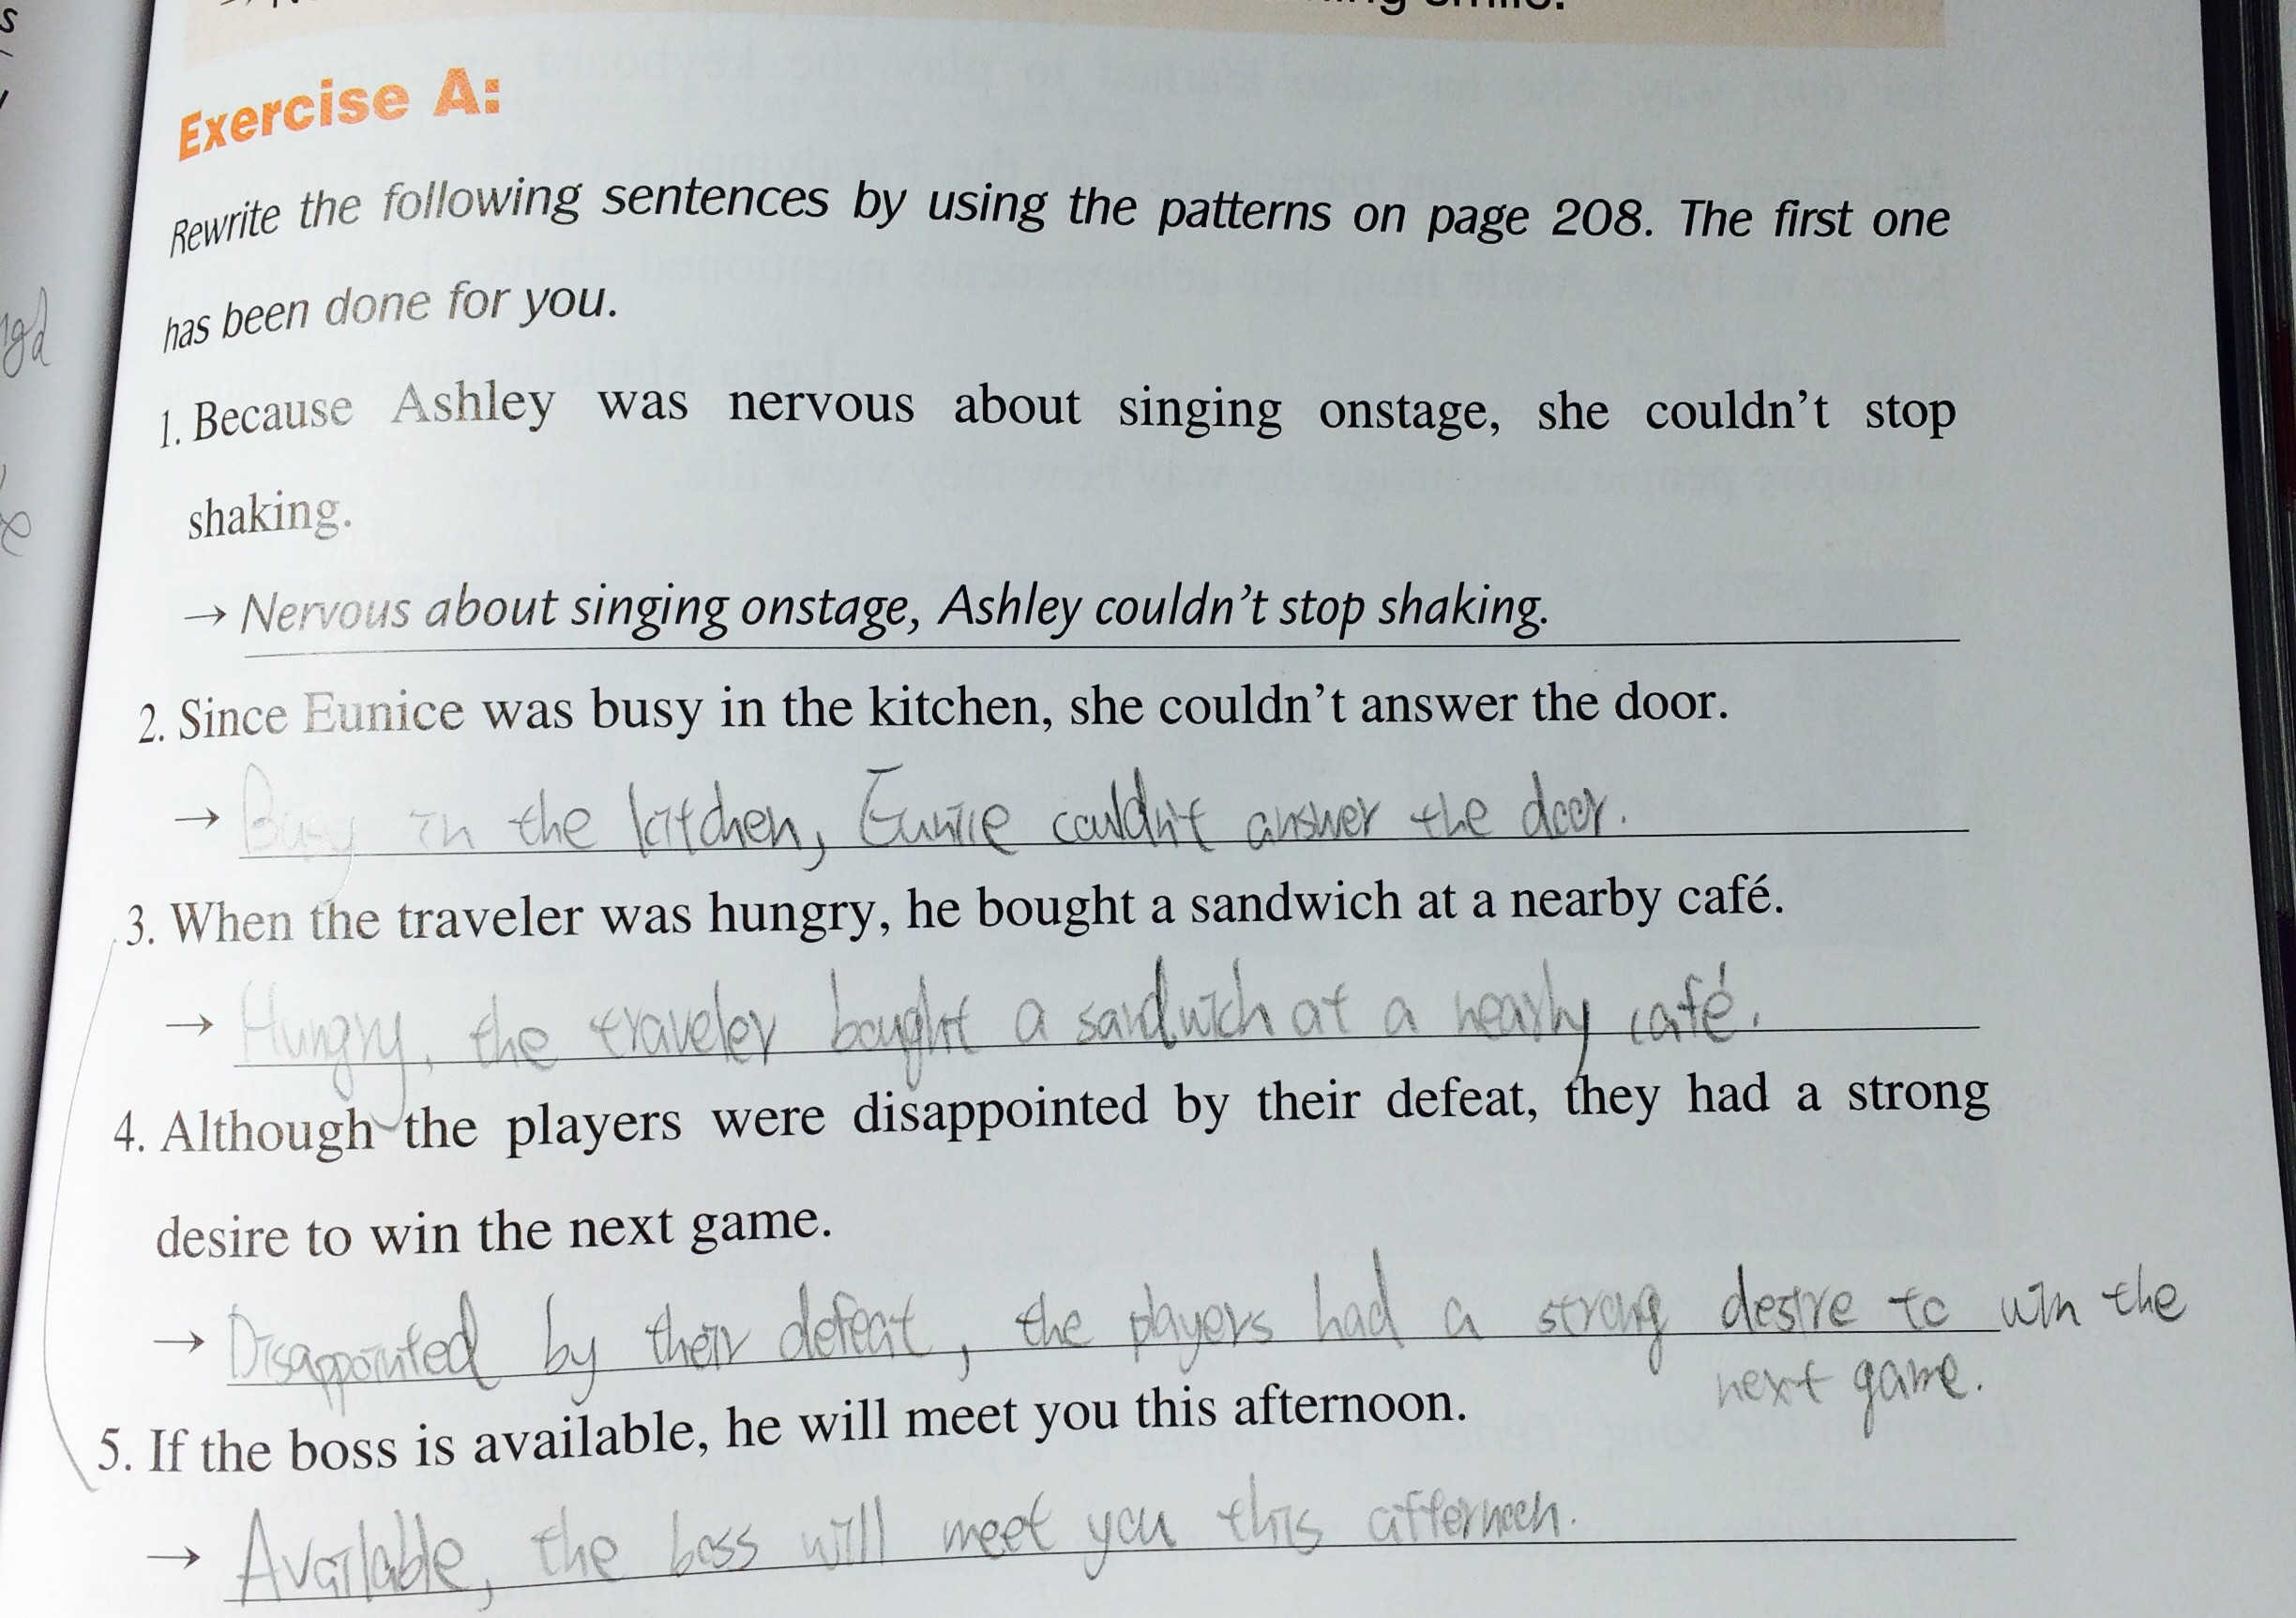 smile.
Exercise A:
Rewrite the following sentences by using the patterns on page 208. The first one
has been done for you.
1. Because Ashley was nervous about singing onstage, she couldn't stop
shaking.
→ Nervous about singing onstage, Ashley couldn't stop shaking.
2. Since Eunice was busy in the kitchen, she couldn't answer the door.
→ Busy in the kitchen, Eunice couldn't answer the door.
3. When the traveler was hungry, he bought a sandwich at a nearby café.
→ Hungry, the traveler bought a sandwich at a nearby café.
4. Although the players were disappointed by their defeat, they had a strong
desire to win the next game.
→ Disappointed by their defeat, the players had a strong desire to win the
next game.
5. If the boss is available, he will meet you this afternoon.
→ Available, the boss will meet you this afternoon.